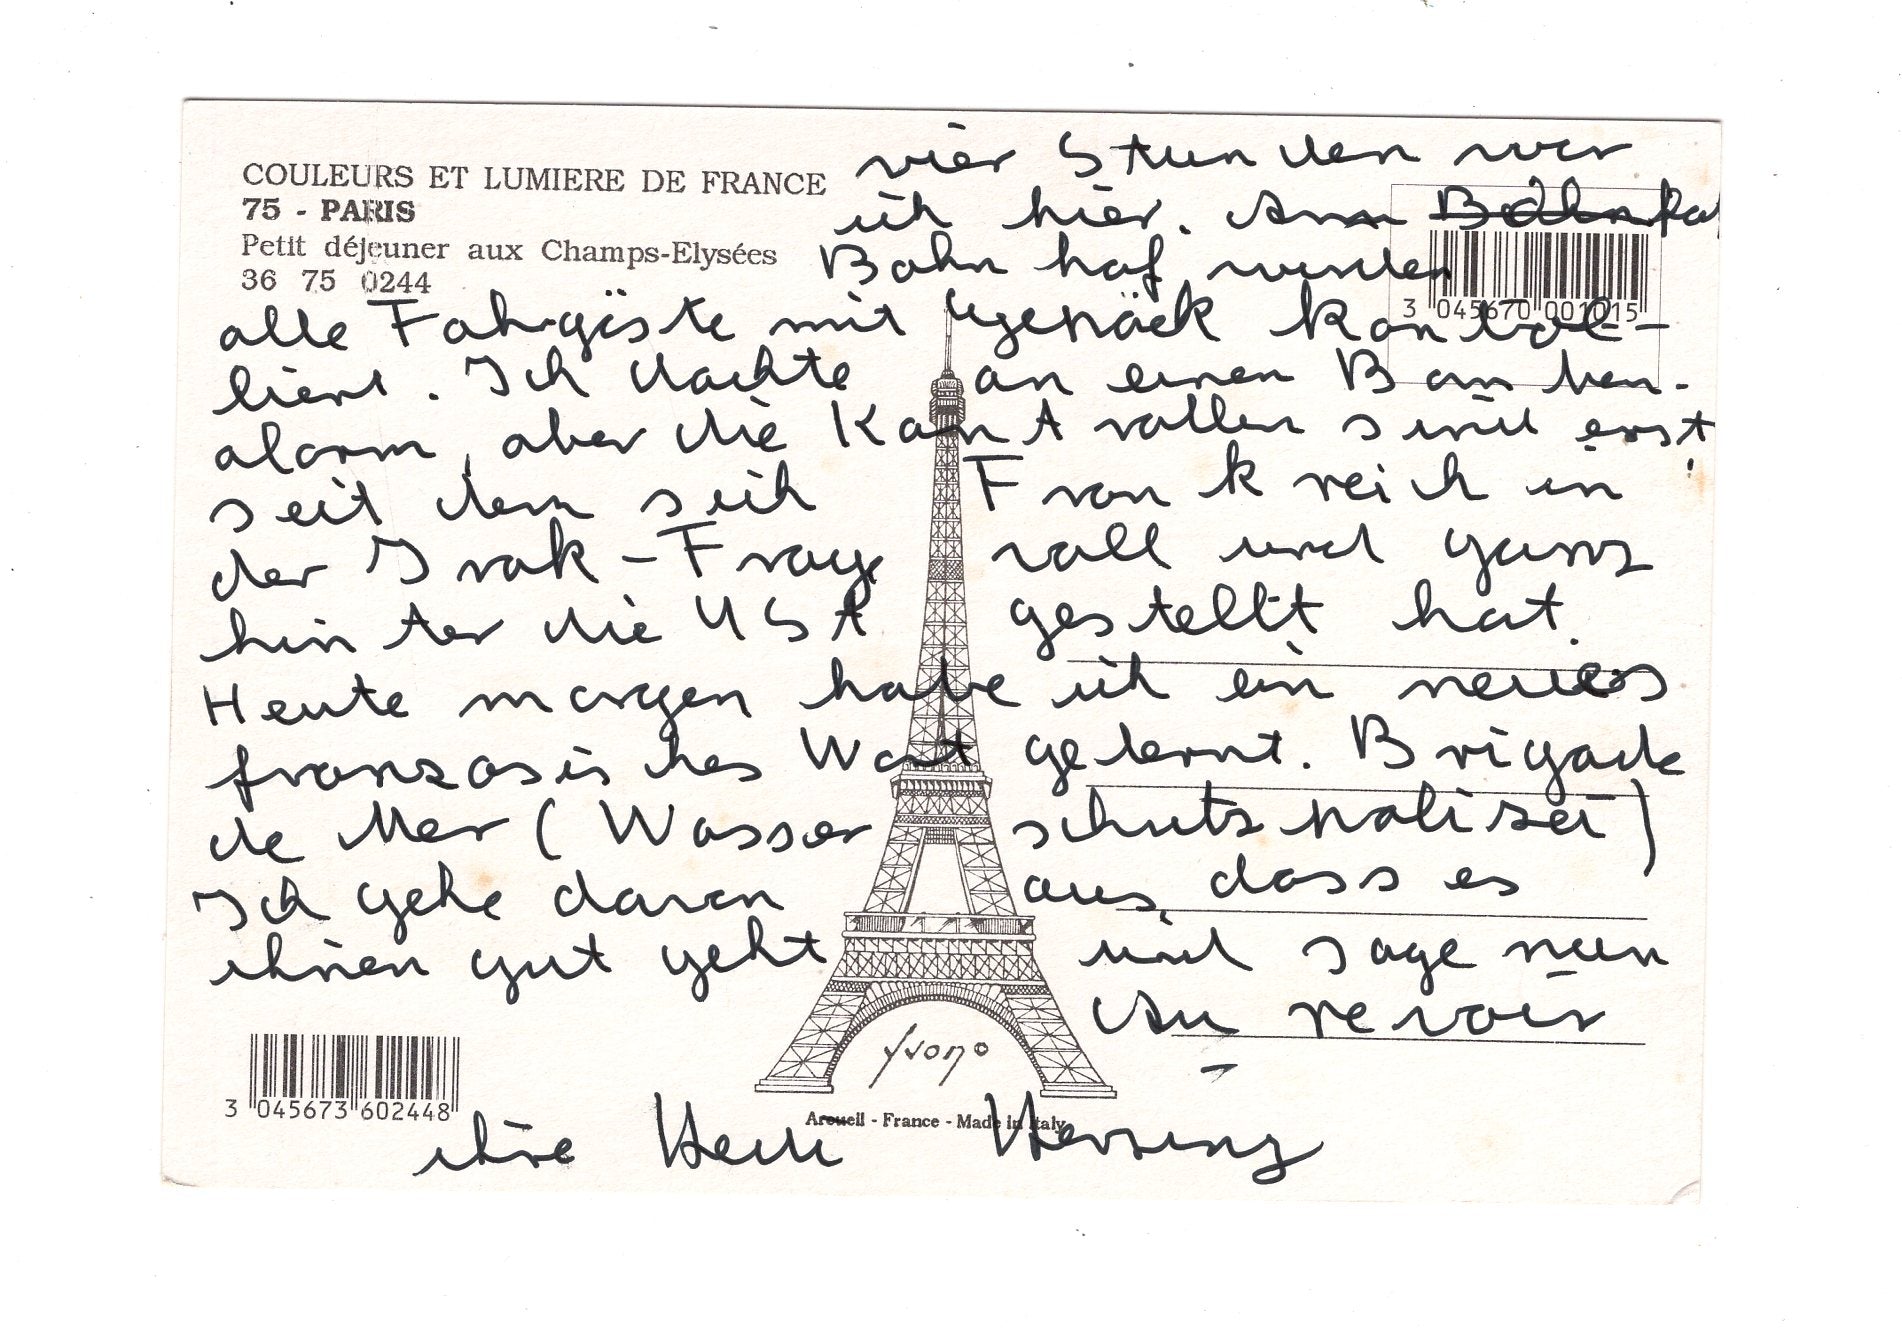 COULEURS ET LUMIERE DE FRANCE
75 - PARIS
Petit déjeuner aux Champs-Elysées
36 75 0244
vier Stunden war
ich hier. Am
Bahnhof werden
3 045670 001015
alle Fahrgäste mit Gepäck kontrol-
liert. Ich dachte an einen Bomben-
alarm, aber die Kontrollen sind erst
seit dem sich Frankreich in
der Irak-Frage voll und ganz
hinter die USA gestellt hat.
Heute morgen habe ich ein neues
französisches Wort gelernt. Brigade
de Mer (Wasserschutzpolizei)
Ich gehe davon aus, dass es
ihnen gut geht und sage nun
Au revoir
Yvon ©
3 045673 602448
Arcueil - France - Made in Italy
ihre